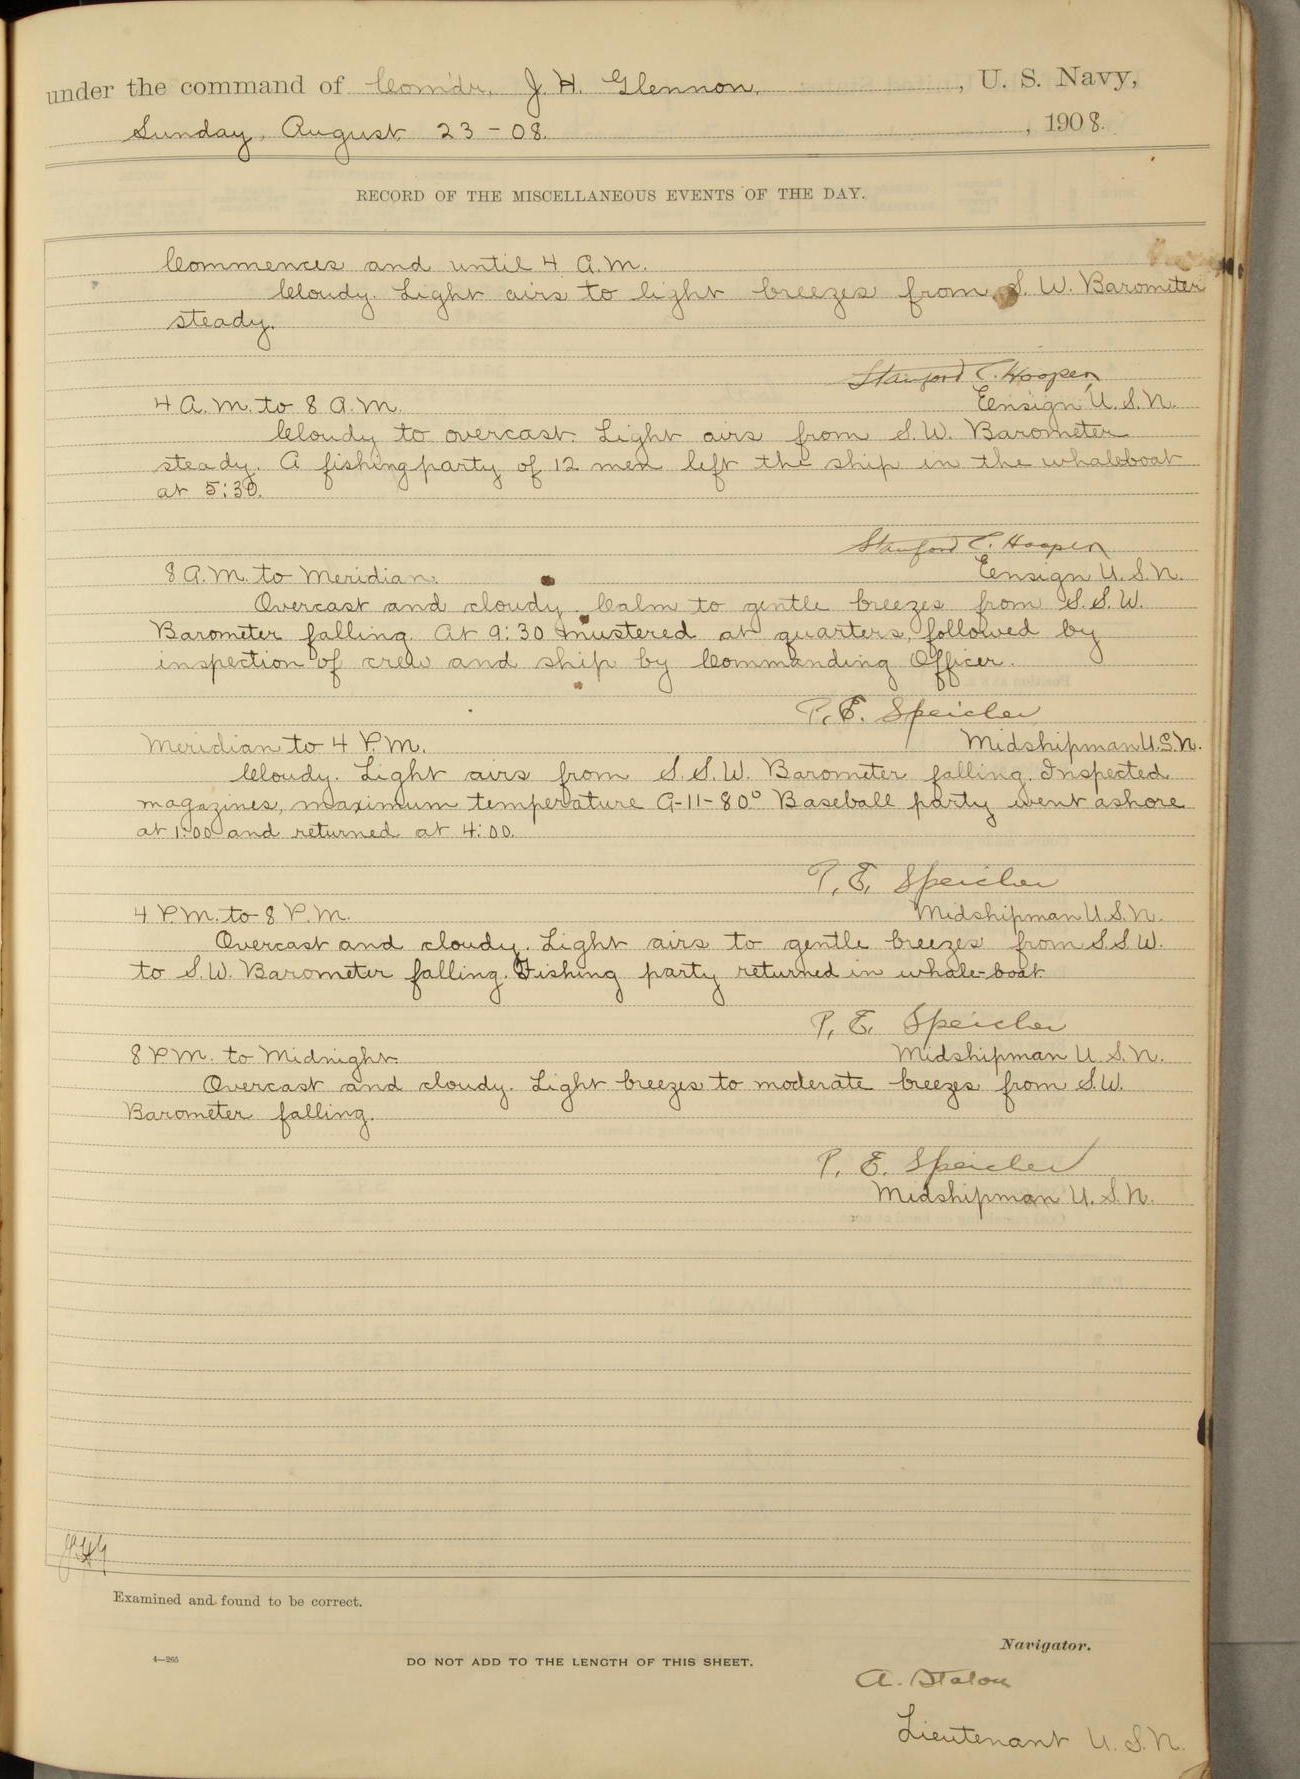 under the command of Com'dr. J. H. Glennon, U. S. Navy,
Sunday, August 23-08. , 1908.
RECORD OF THE MISCELLANEOUS EVENTS OF THE DAY.
Commences and until 4 A.M.
Cloudy. Light airs to light breezes from S. W. Barometer
steady.
Stanford C. Hooper,
4 A.M. to 8 A.M. Ensign U.S.N.
Cloudy to overcast. Light airs from S.W. Barometer
steady. A fishing party of 12 men left the ship in the whaleboat
at 5:30.
Stanford C. Hooper
8 A.M. to Meridian. Ensign U.S.N.
Overcast and cloudy. Calm to gentle breezes from S.S.W.
Barometer falling. At 9:30 mustered at quarters, followed by
inspection of crew and ship by Commanding Officer.
P. E. Speicher
Meridian to 4 P.M. Midshipman U.S.N.
Cloudy. Light airs from S.S.W. Barometer falling. Inspected
magazines, maximum temperature A-11-80° Baseball party went ashore
at 1:00 and returned at 4:00.
P. E. Speicher
4 P.M. to 8 P.M. Midshipman U.S.N.
Overcast and cloudy. Light airs to gentle breezes from S.S.W.
to S.W. Barometer falling. Fishing party returned in whale-boat
P. E. Speicher
8 P.M. to Midnight. Midshipman U.S.N.
Overcast and cloudy. Light breezes to moderate breezes from S.W.
Barometer falling.
P. E. Speicher
Midshipman U.S.N.
Examined and found to be correct.
Navigator.
4—265 DO NOT ADD TO THE LENGTH OF THIS SHEET.
A.
Lieutenant U.S.N.